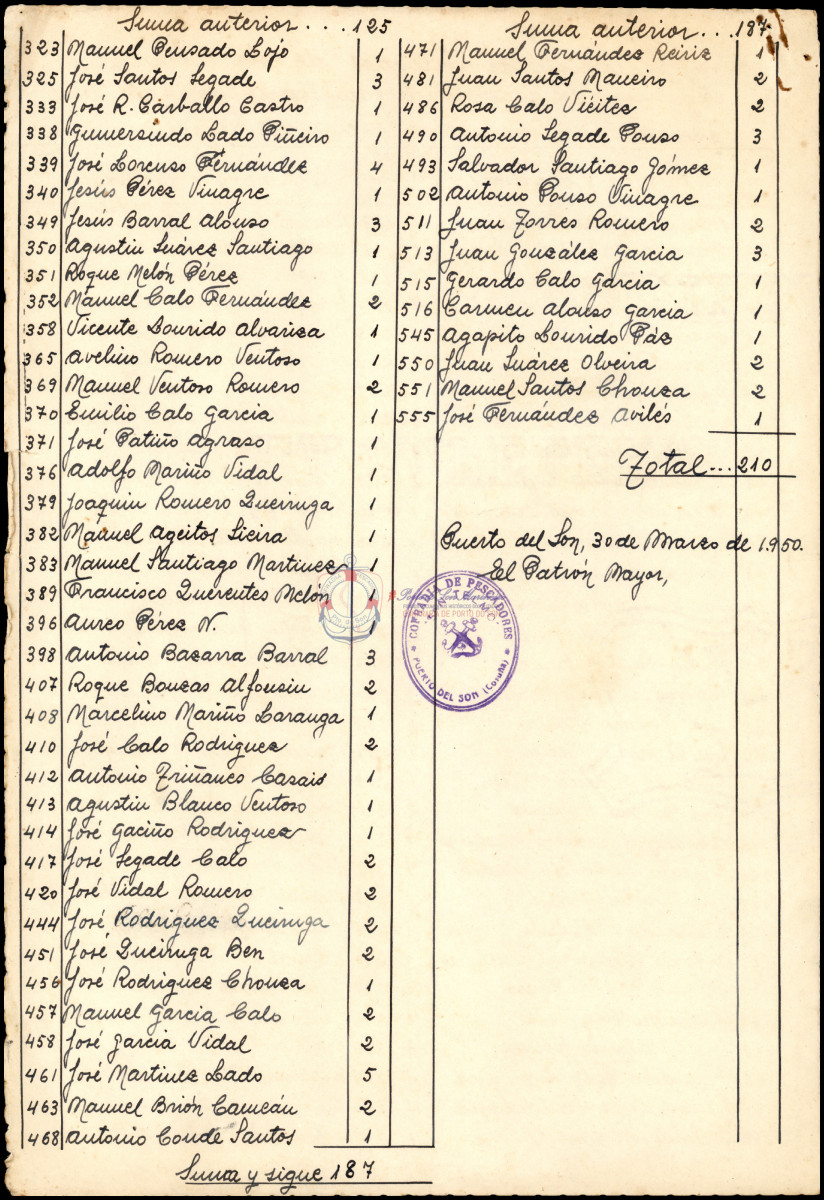 Suma anterior... 125
323 Manuel Pensado Lojo 1
325 José Santos Segade 3
333 José R. Carballo Castro 1
338 Gumersindo Lado Piñeiro 1
339 José Lorenso Fernández 4
340 Jesús Pérez Vinagre 1
349 Jesús Barral Alonso 3
350 Agustin Suárez Santiago 1
351 Roque Melón Pérez 1
352 Manuel Calo Fernández 2
358 Vicente Lourido Alvariza 1
365 Avelino Romero Ventoso 1
369 Manuel Ventoso Romero 2
370 Emilio Calo Garcia 1
371 José Patiño Agraso 1
376 Adolfo Mariño Vidal 1
379 Joaquin Romero Queiruga 1
382 Manuel Ageitos Sieira 1
383 Manuel Santiago Martinez 1
389 Francisco Querentes Melón 1
396 Aureo Pérez N. 1
398 Antonio Bazarra Barral 3
407 Roque Bouzas Alfonsin 2
408 Marcelino Mariño Laranga 1
410 José Calo Rodriguez 2
412 Antonio Triñanes Casais 1
413 Agustin Blanco Ventoso 1
414 José Gaciño Rodriguez 1
417 José Segade Calo 2
420 José Vidal Romero 2
444 José Rodriguez Queiruga 2
451 José Queiruga Ben 2
456 José Rodriguez Chouza 1
457 Manuel Garcia Calo 2
458 José Garcia Vidal 2
461 José Martinez Lado 5
463 Manuel Brión Cameán 2
468 Antonio Conde Santos 1
Suma y sigue 187
Suma anterior... 187
471 Manuel Fernández Reiriz 1
481 Juan Santos Maneiro 2
486 Rosa Calo Viéitez 2
490 Antonio Segade Pouso 3
493 Salvador Santiago Gómez 1
502 Antonio Pouso Vinagre 1
511 Juan Torres Romero 2
513 Juan González Garcia 3
515 Gerardo Calo Garcia 1
516 Carmen Alonso Garcia 1
545 Agapito Lourido Páz 1
550 Juan Suárez Olveira 2
551 Manuel Santos Chouza 2
555 José Fernández Avilés 1
Total... 210
Puerto del Son, 30 de Marzo de 1.950.
El Patrón Mayor,
COFRADIA DE PESCADORES
PUERTO DEL SON (Coruña)